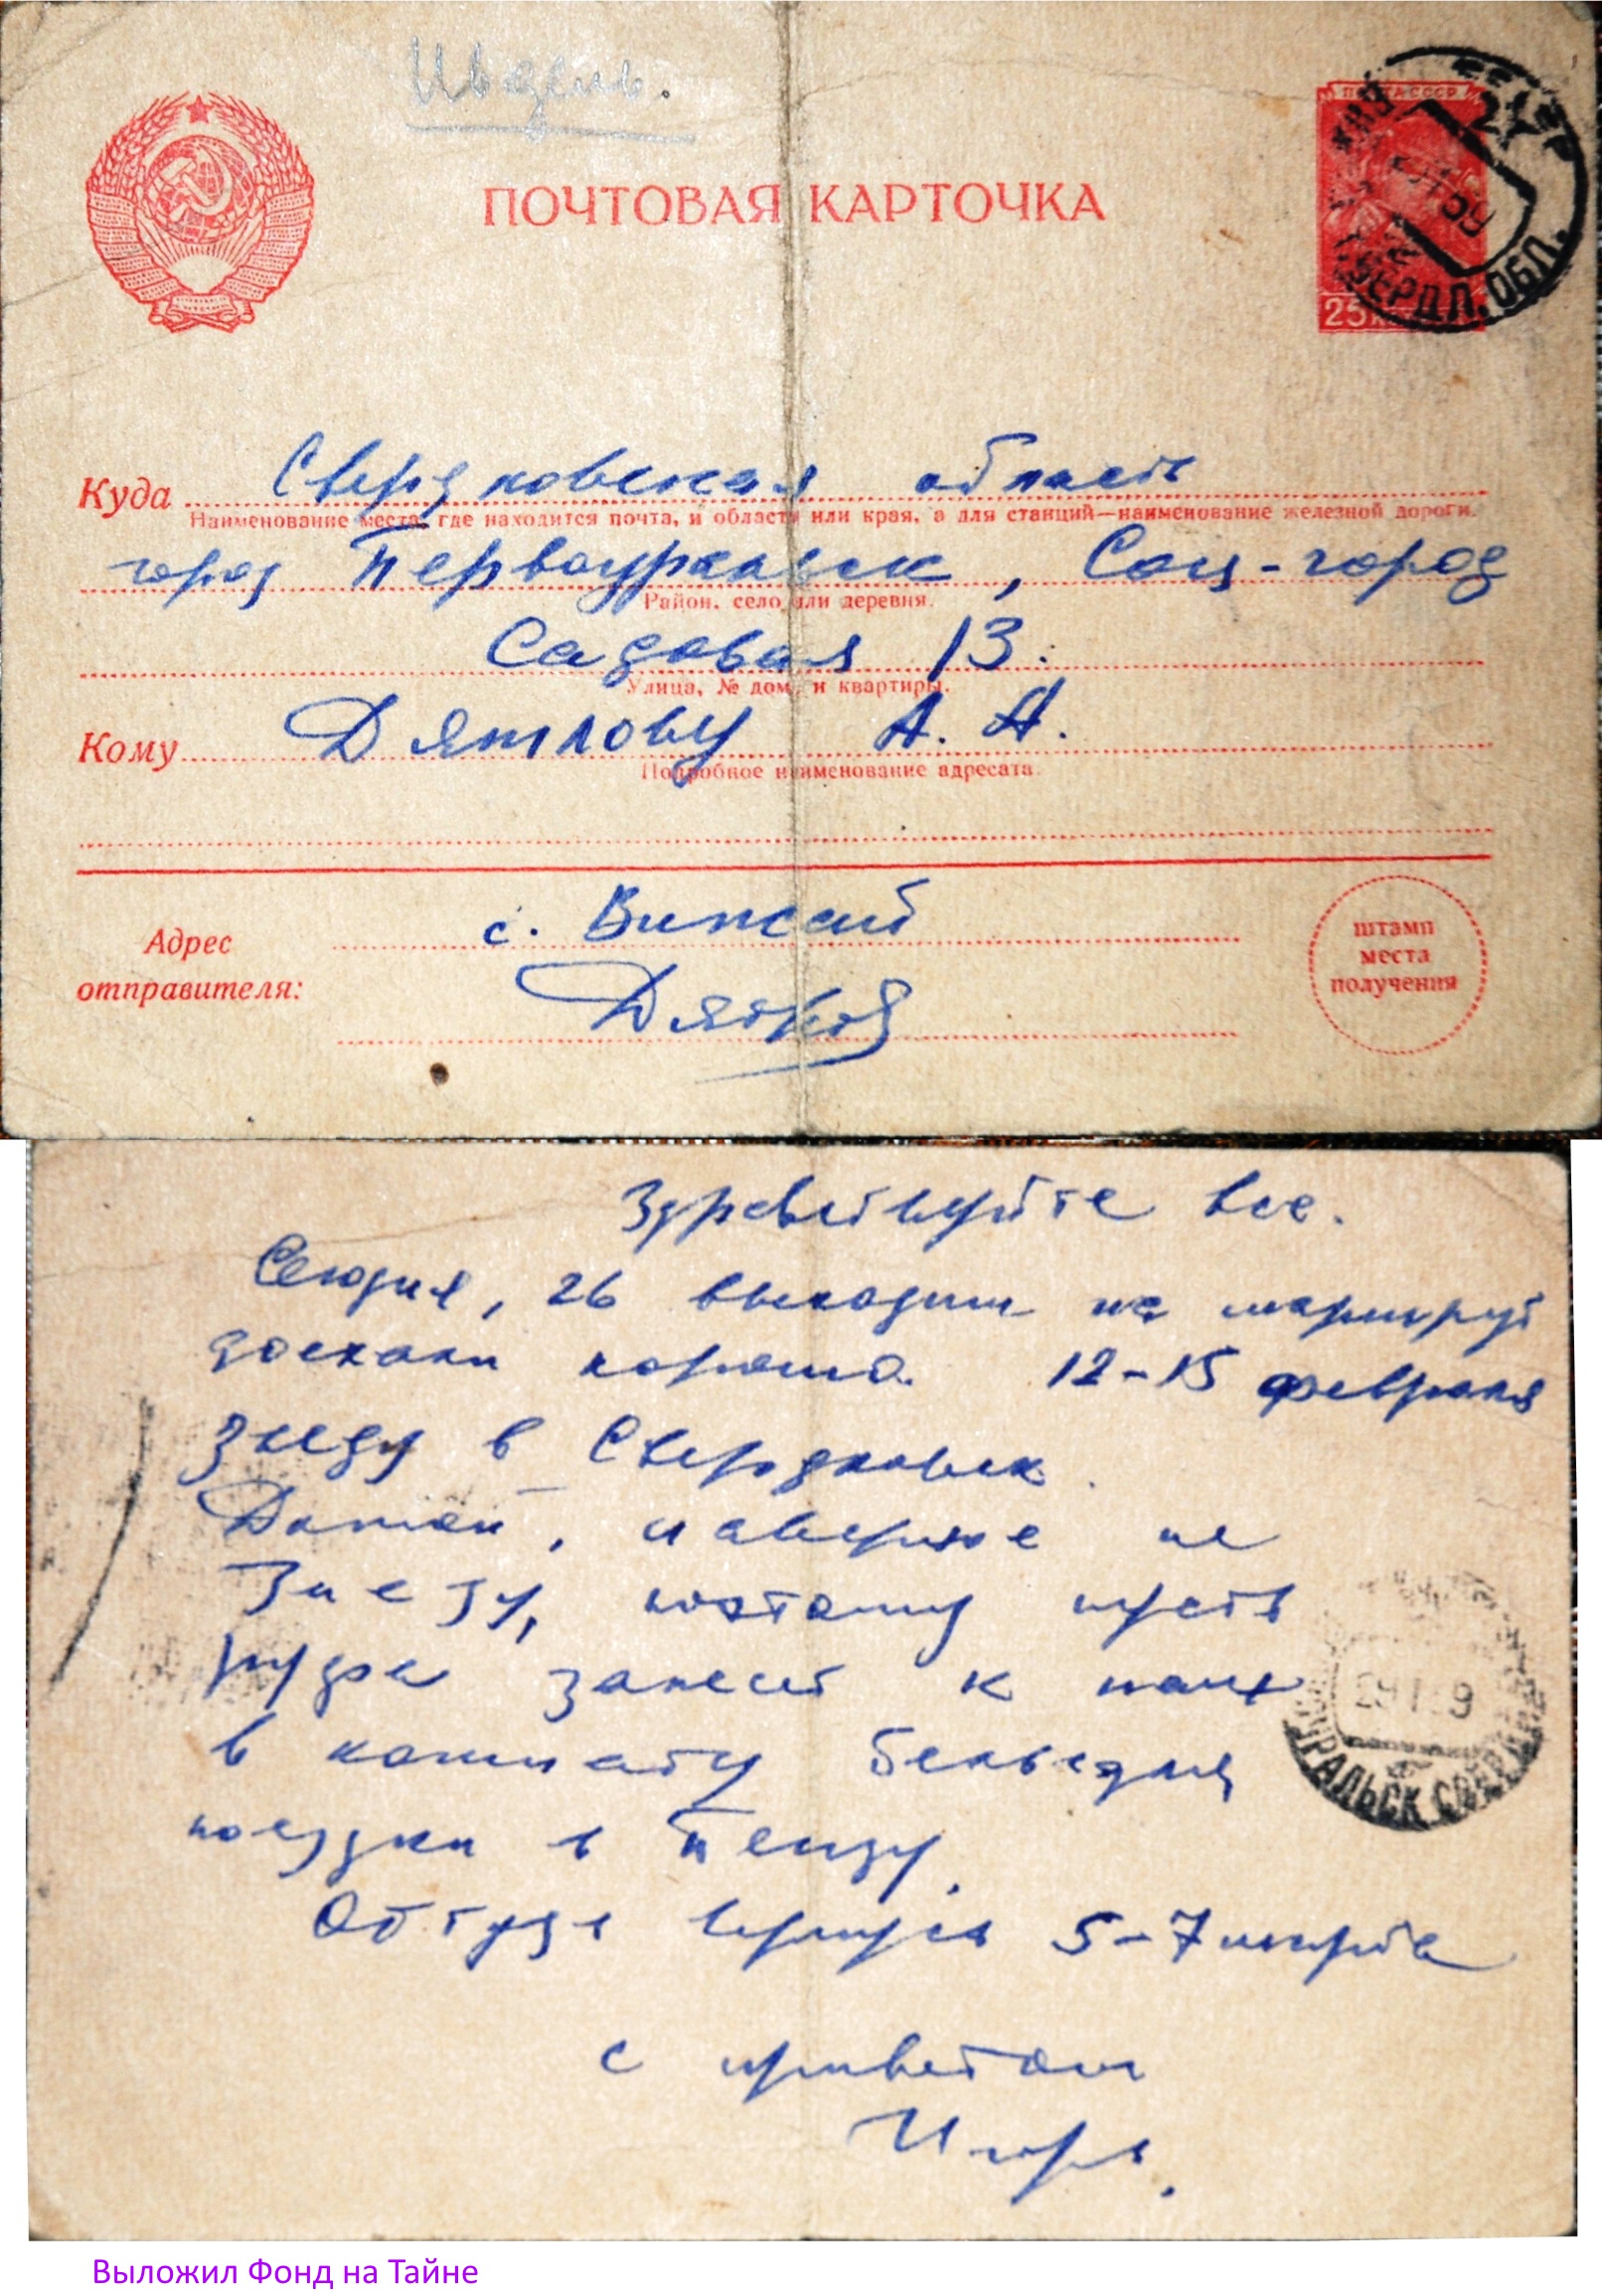 Ивдель.
ПОЧТОВАЯ КАРТОЧКА
ПОЧТА СССР
59
СВЕРДЛ. ОБЛ.
25
Куда Свердловская область
Наименование места, где находится почта, и области или края, а для станций—наименование железной дороги.
город Первоуральск, Соц-город
Район, село или деревня.
Садовая 13.
Улица, № дома и квартиры.
Кому Дятлову А. А.
Подробное наименование адресата.
Адрес
отправителя:
с. Вижай
Дятлов
штамп
места
получения
Здравствуйте все.
Сегодня, 26 выходим на маршрут
доехали хорошо. 12-15 февраля
заеду в Свердловск.
Домой, наверное не
заеду, поэтому пусть
Руфа занесет к нам
в комнату белье для
поездки в Пензу.
Оттуда вернусь 5-7 марта
УРАЛЬСК СВЕРДЛ
с приветом
Игорь.
Выложил Фонд на Тайне